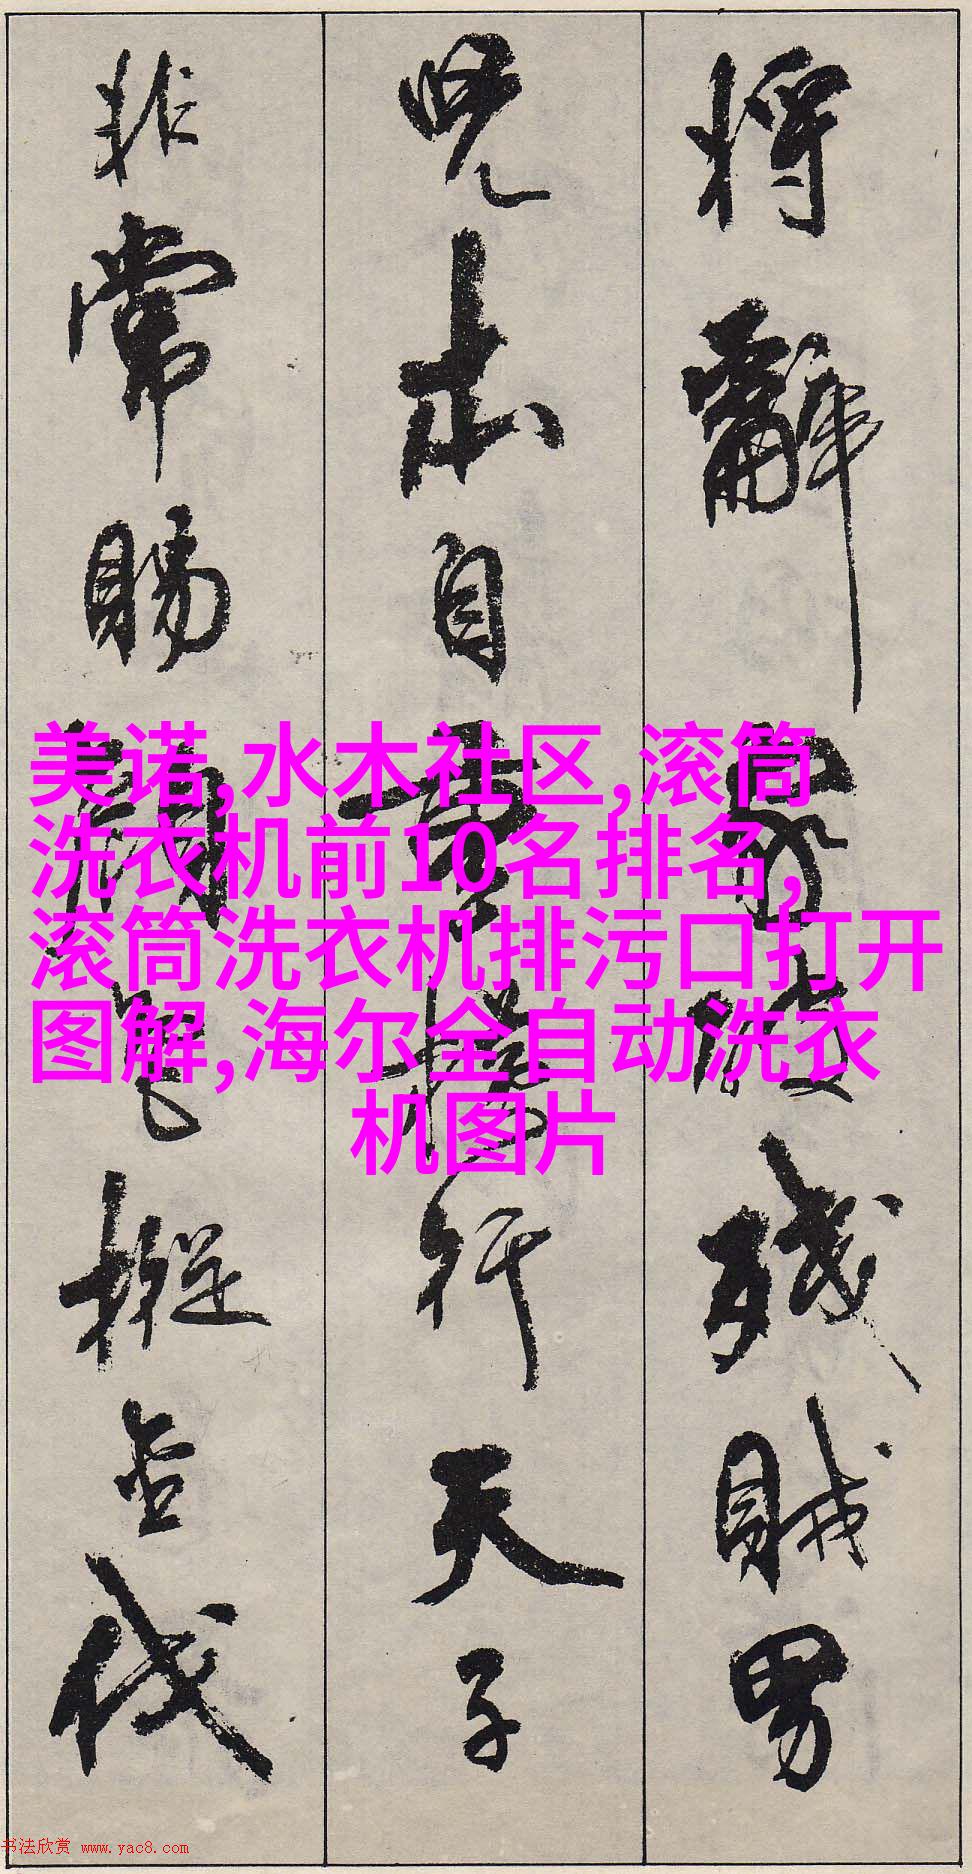 将辭家破殘賊男
兒本自重橫行天子
非常賜顏色摐金伐
美诺,水木社区,滚筒
洗衣机前10名排名,
滚筒洗衣机排污口打开
图解,海尔全自动洗衣
机图片
书法欣赏 www.yac8.com